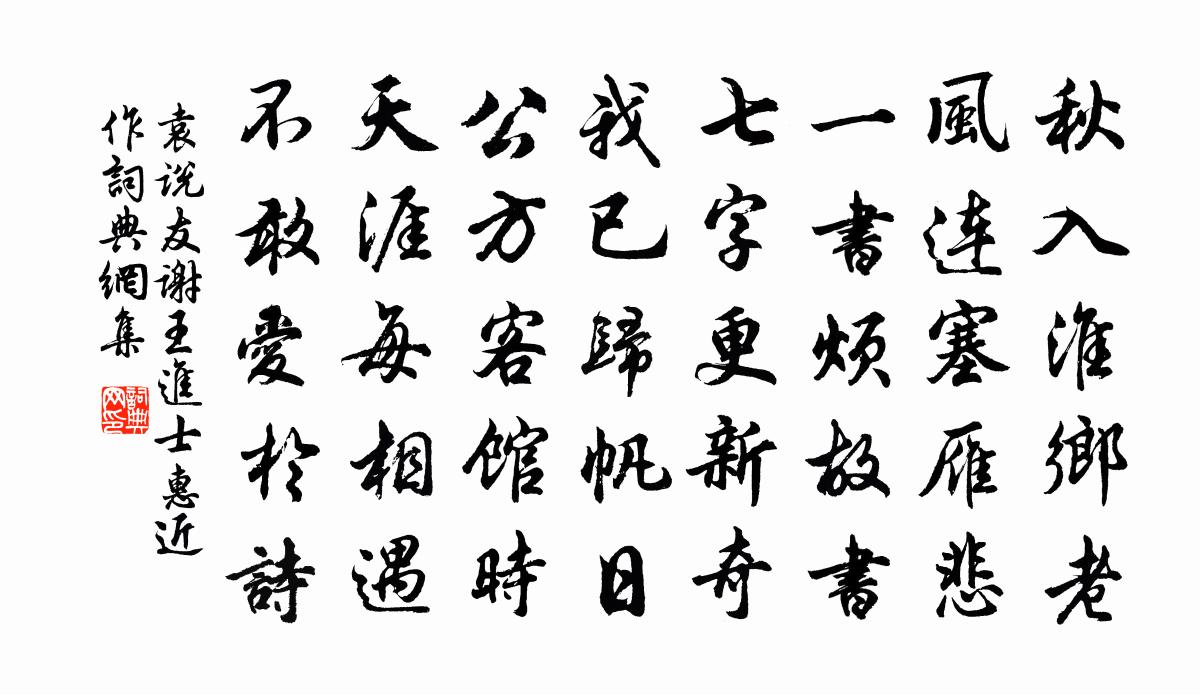 秋入淮鄉老
風連塞雁悲
一書煩故書
七字更新奇
我已歸帆日
公方客館時
天涯每相遇
不敢愛於詩
袁说友谢王進士惠近
作詞典網集
詞典
网印